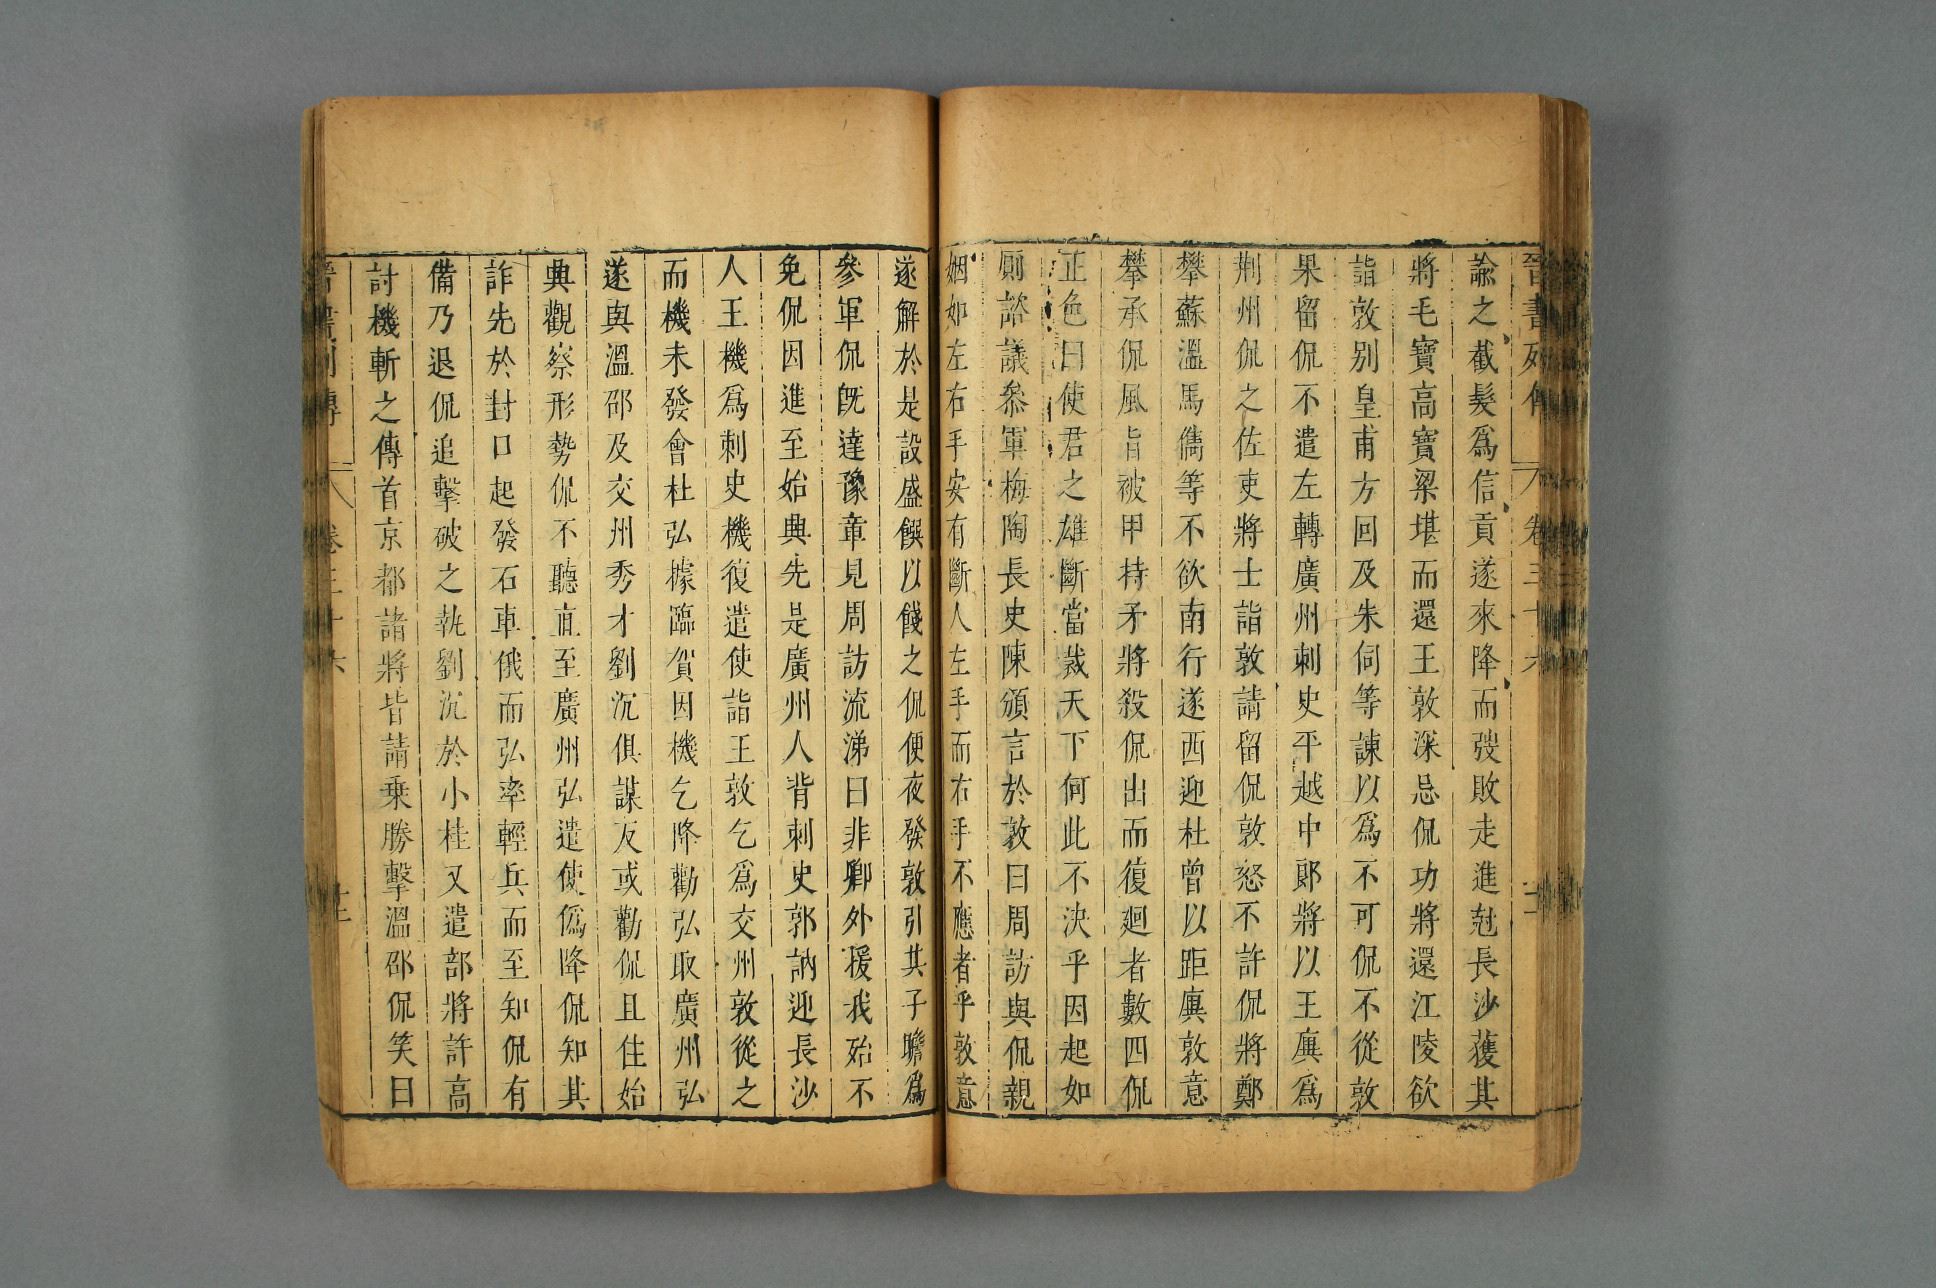 晉書列傳 卷三十六 十一
諭之截髮爲信貢遂來降而弢敗走進尅長沙獲其
將毛寶高寶梁堪而還王敦深忌侃功將還江陵欲
詣敦別皇甫方回及朱伺等諫以爲不可侃不從敦
果留侃不遣左轉廣州刺史平越中郞將以王廙爲
荆州侃之佐吏將士詣敦請留侃敦怒不許侃將鄭
攀蘇溫馬儁等不欲南行遂西迎杜曾以距廙敦意
攀承侃風旨被甲持矛將殺侃出而復廻者數四侃
正色曰使君之雄斷當裁天下何此不決乎因起如
厠諮議參軍梅陶長史陳頒言於敦曰周訪與侃親
姻如左右手安有斷人左手而右手不應者乎敦意
遂解於是設盛饌以餞之侃便夜發敦引其子瞻爲
參軍侃旣達豫章見周訪流涕曰非卿外援我殆不
免侃因進至始興先是廣州人背刺史郭訥迎長沙
人王機爲刺史機復遣使詣王敦乞爲交州敦從之
而機未發會杜弘據臨賀因機乞降勸弘取廣州弘
遂與溫邵及交州秀才劉沉俱謀反或勸侃且住始
興觀察形勢侃不聽直至廣州弘遣使僞降侃知其
詐先於封口起發石車俄而弘率輕兵而至知侃有
備乃退侃追擊破之執劉沉於小桂又遣部將許高
討機斬之傳首京都諸將皆請乗勝擊溫邵侃笑曰
晉書列傳 卷三十六 十一